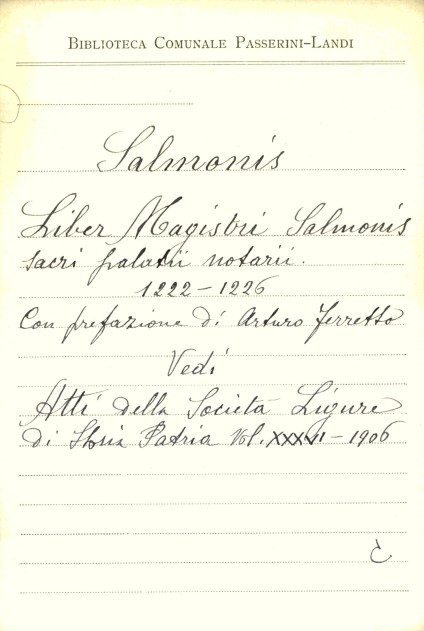 BIBLIOTECA COMUNALE PASSERINI-LANDI
Salmonis
Liber Magistri Salmonis
sacri palatii notarii.
1222-1226
Con prefazione di Arturo Ferretto
Vedi
Atti della Società Ligure
di Storia Patria Vol. XXXVI - 1906